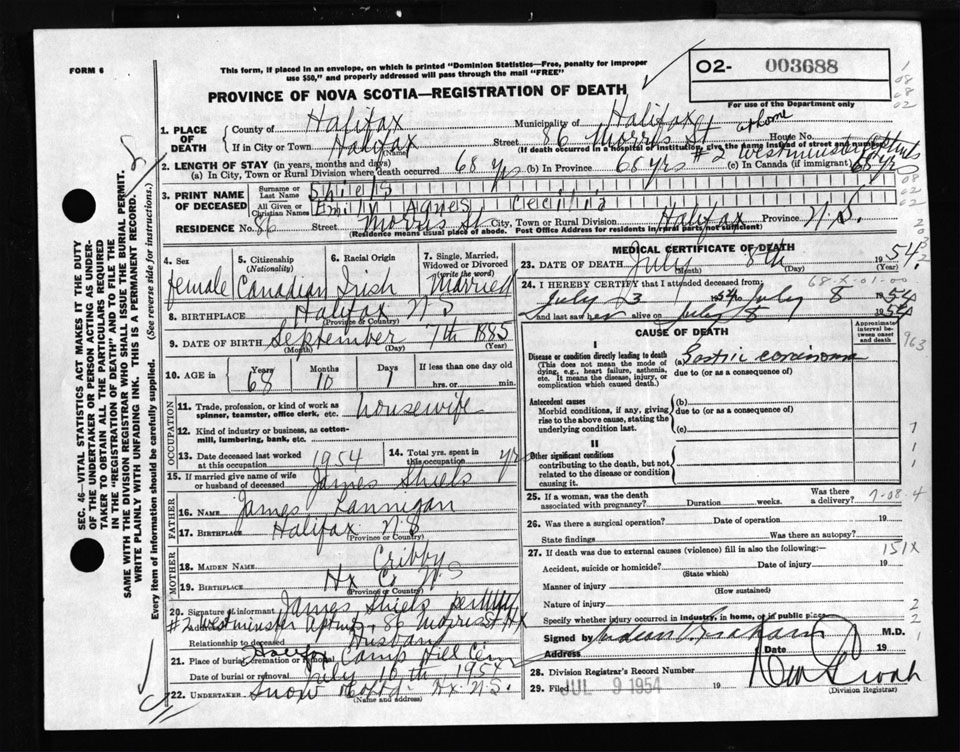 FORM 6
This form, if placed in an envelope, on which is printed "Dominion Statistics—Free, penalty for improper
use $50," and properly addressed will pass through the mail "FREE"
02- 003688
For use of the Department only
PROVINCE OF NOVA SCOTIA—REGISTRATION OF DEATH
1. PLACE OF DEATH
County of Halifax Municipality of Halifax
If in City or Town Halifax (Name) Street 86 Morris St at home House No.
(If death occurred in a hospital or institution, give the name instead of street and number)
#2 Westminster
2. LENGTH OF STAY (in years, months and days)
(a) In City, Town or Rural Division where death occurred 68 yrs (b) In Province 68 yrs (c) In Canada (if immigrant) 68 yrs
3. PRINT NAME OF DECEASED
Surname or Last Name Shiels
All Given or Christian Names Emily Agnes Cecilia
RESIDENCE No. 86 Street Morris St City, Town or Rural Division Halifax Province N.S.
(Residence means usual place of abode. Post Office Address for residents in rural parts not sufficient)
4. Sex female
5. Citizenship (Nationality) Canadian
6. Racial Origin Irish
7. Single, Married, Widowed or Divorced (write the word) Married
8. BIRTHPLACE Halifax N S
(Province or Country)
9. DATE OF BIRTH September 7th 1885
(Month) (Day) (Year)
10. AGE in Years 68 Months 10 Days 1 If less than one day old hrs. or min.
OCCUPATION
11. Trade, profession, or kind of work as spinner, teamster, office clerk, etc. housewife
12. Kind of industry or business, as cotton-mill, lumbering, bank, etc.
13. Date deceased last worked at this occupation 1954
14. Total yrs. spent in this occupation yrs
15. If married give name of wife or husband of deceased James Shiels
FATHER
16. NAME James Lannigan
17. BIRTHPLACE Halifax N S
(Province or Country)
MOTHER
18. MAIDEN NAME Cribby
19. BIRTHPLACE Hx Co NS
(Province or Country)
20. Signature of informant James Shiels per
Address #2 Westminster Aptmts, 86 Morris St Hx
Relationship to deceased Husband
21. Place of burial, cremation or removal Halifax Camp Hill Cem
Date of burial or removal July 10th 1954
22. UNDERTAKER Snow & Co Ltd. Hx. N.S.
(Name and address)
MEDICAL CERTIFICATE OF DEATH
23. DATE OF DEATH July 8th 1954
(Month) (Day) (Year)
68-X-01-00
24. I HEREBY CERTIFY that I attended deceased from:
July 3 1954 to July 8 1954
and last saw her alive on July 8 1954
CAUSE OF DEATH
Approximate interval between onset and death
I
Disease or condition directly leading to death
(This does not mean the mode of dying, e.g., heart failure, asthenia, etc. It means the disease, injury, or complication which caused death.)
(a) Gastric carcinoma
due to (or as a consequence of)
Antecedent causes
Morbid conditions, if any, giving rise to the above cause, stating the underlying condition last.
(b)
due to (or as a consequence of)
(c)
II
Other significant conditions
contributing to the death, but not related to the disease or condition causing it.
25. If a woman, was the death associated with pregnancy? Duration weeks. Was there a delivery?
7-08-4
26. Was there a surgical operation? Date of operation 19
State findings Was there an autopsy?
27. If death was due to external causes (violence) fill in also the following:—
151X
Accident, suicide or homicide? Date of injury 19
(State which)
Manner of injury
(How sustained)
Nature of injury
Specify whether injury occurred in industry, in home, or in public place
Signed by Judson V. Graham M.D.
Address Date 19
28. Division Registrar's Record Number
29. Filed JUL 9 1954 19
(Division Registrar)
SEC. 46—VITAL STATISTICS ACT MAKES IT THE DUTY
OF THE UNDERTAKER OR PERSON ACTING AS UNDER-
TAKER TO OBTAIN ALL THE PARTICULARS REQUIRED
IN THE "REGISTRATION OF DEATH" AND TO FILE THE
SAME WITH THE DIVISION REGISTRAR WHO SHALL ISSUE THE BURIAL PERMIT.
WRITE PLAINLY WITH UNFADING INK. THIS IS A PERMANENT RECORD.
Every item of information should be carefully supplied. (See reverse side for instructions.)